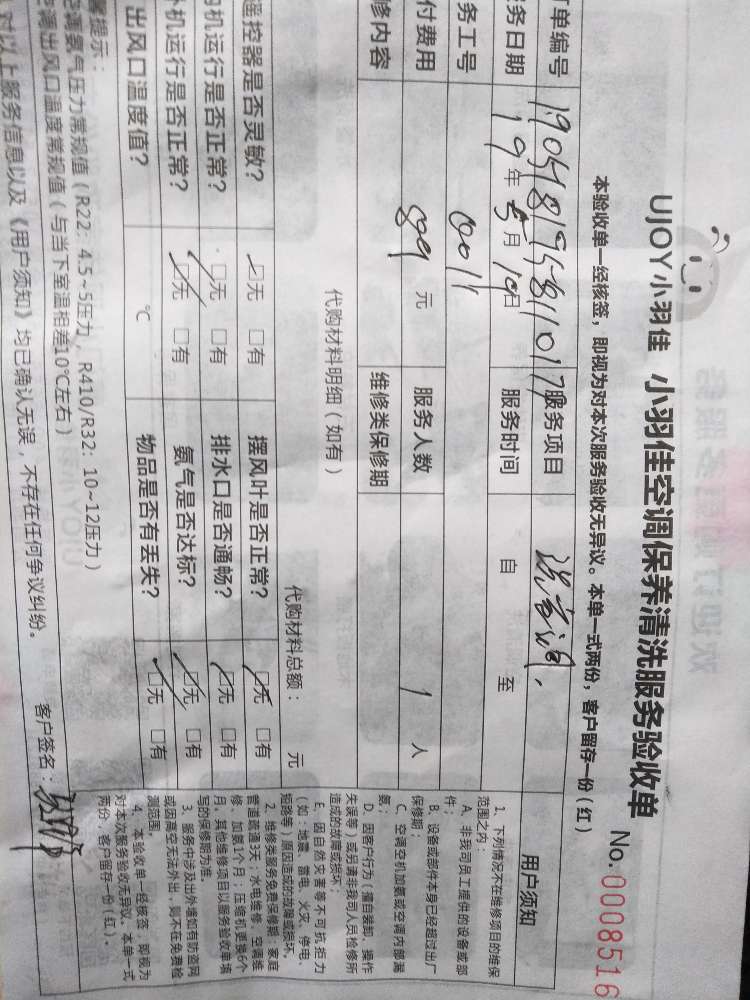 UJOY小羽佳 小羽佳空调保养清洗服务验收单 No.0008516
本验收单一经核签，即视为对本次服务验收无异议。本单一式两份，客户留存一份（红）
单编号 服务项目
务日期 19年5月19日 服务时间 自 至
务工号 0011
付费用 元 服务人数 1 人
修内容 维修类保修期
代购材料明细（如有） 代购材料总额： 元
遥控器是否灵敏？ 无 有 摆风叶是否正常？ 无 有
内机运行是否正常？ 无 有 排水口是否通畅？ 无 有
外机运行是否正常？ 无 有 氨气是否达标？ 无 有
出风口温度值？ ℃ 物品是否有丢失？ 无 有
提示：
空调氨气压力常规值（R22：4.5~5压力，R410/R32：10~12压力）
空调出风口温度常规值（与当下室温相差10℃左右）
对以上服务信息以及《用户须知》均已确认无误，不存在任何争议纠纷。 客户签名：
用户须知
1、下列情况不在维修项目的维保
范围之内：
A、非我司员工提供的设备或部
件；
B、设备或部件本身已经超过出厂
保修期；
C、空调空机加氨或空调内部漏
氨；
D、因客户行为（擅自装卸，操作
失误等）或另请非我司人员检修所
造成的故障或损坏；
E、因自然灾害等不可抗拒力
（如：地震、雷电、火灾、停电、
短路等）原因造成的故障或损坏。
2、维修类服务免费保修期：家庭
管道疏通3天，水电维修、空调维
修、加氨1个月；压缩机更换6个
月，其他维修项目以服务验收单填
写的保修期为准。
3、服务中涉及出外墙如有防盗网
或因高空无法外出，则不在免费检
测范围。
4、本验收单一经核签，即视为
对本次服务验收无异议。本单一式
两份，客户留存一份（红）。